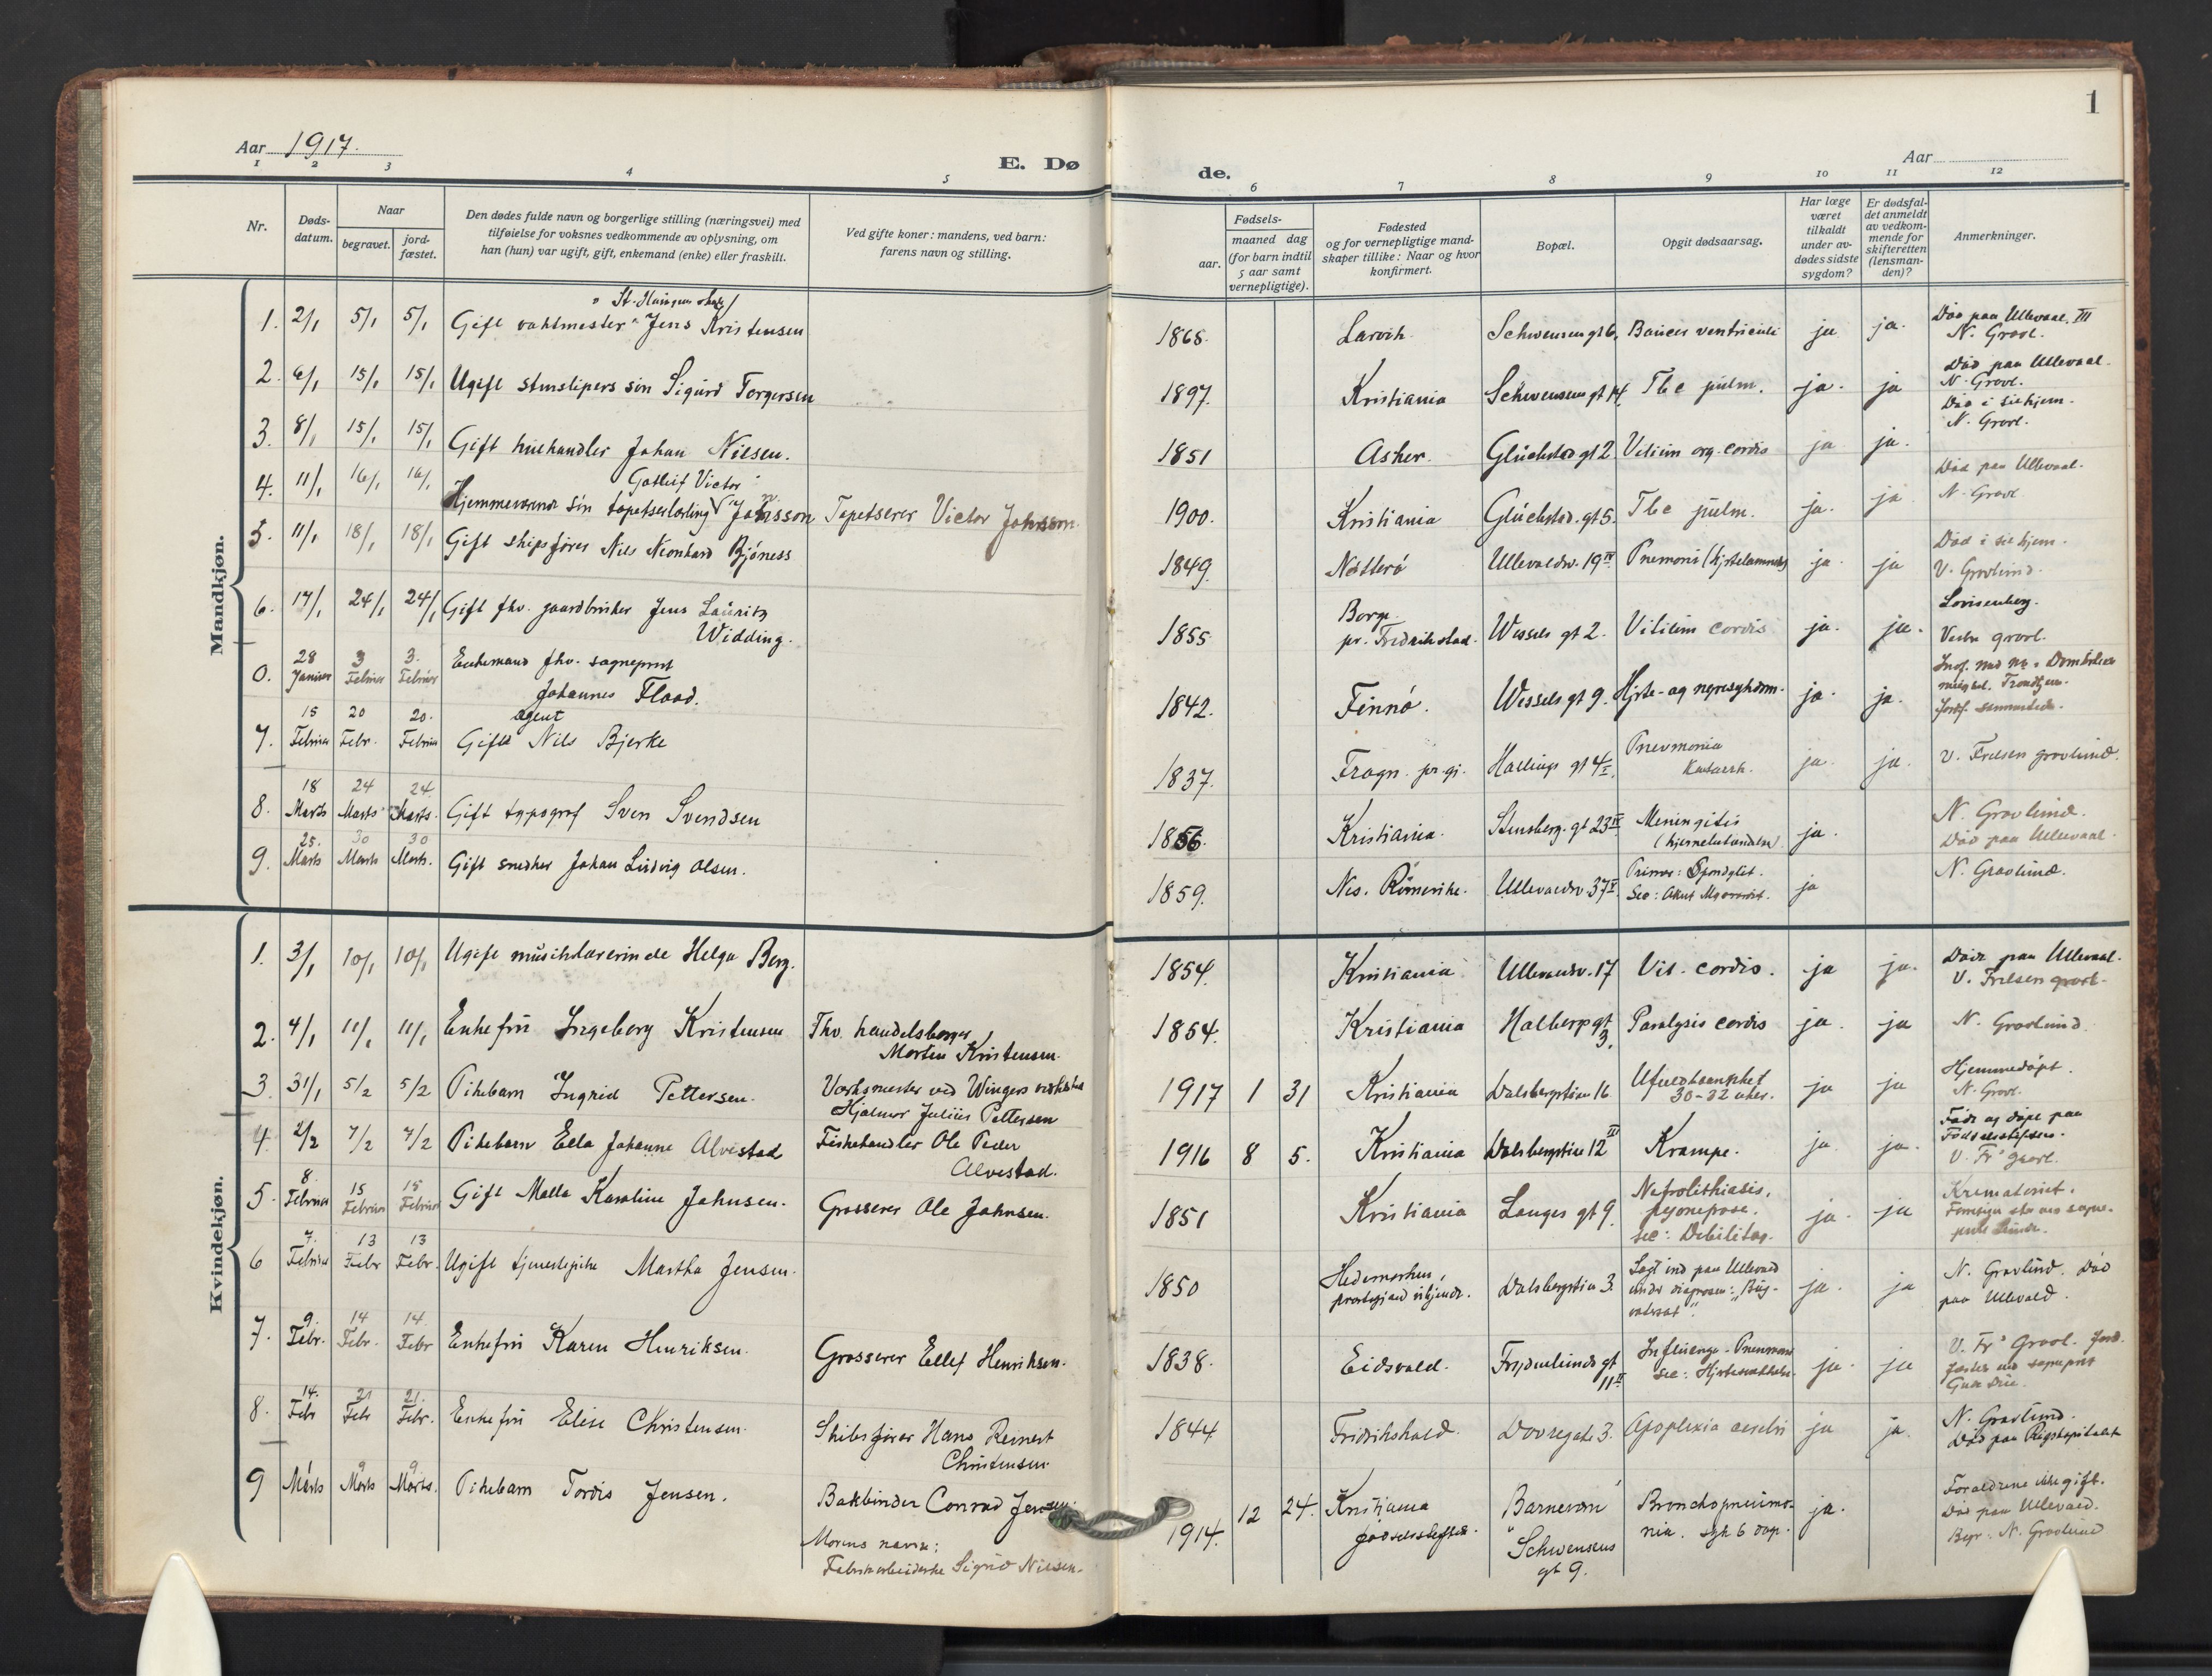 1
Aar 1917.
E. Døde.
Aar
1 2 3 4 5 6 7 8 9 10 11 12
Nr.
Døds-
datum.
Naar
begravet.
jord-
fæstet.
Den dødes fulde navn og borgerlige stilling (næringsvei) med
tilføielse for voksnes vedkommende av oplysning, om
han (hun) var ugift, gift, enkemand (enke) eller fraskilt.
Ved gifte koner: mandens, ved barn:
farens navn og stilling.
Fødsels-
aar.
maaned dag
(for barn indtil
5 aar samt
vernepligtige).
Fødested
og for vernepligtige mand-
skaper tillike: Naar og hvor
konfirmert.
Bopæl.
Opgit dødsaarsag.
Har læge
været
tilkaldt
under av-
dødes sidste
sygdom?
Er dødsfal-
det anmeldt
av vedkom-
mende for
skifteretten
(lensman-
den)?
Anmerkninger.
Mandkjøn.
1. 2/1 5/1 5/1 Gift vaktmester Jens Kristensen 1868. Larvik Schwensensgt 6. ventriculi ja ja. Död paa Ullevaal. III
N. Gravl.
2. 6/1 15/1 15/1 Ugift stenslipers sön Sigurd Torgersen 1897. Kristiania Schwensens gt 14. Tbc pulm. ja. ja Död paa Ullevaal.
N. Gravl.
3. 8/1 15/1 15/1 Gift Johan Nilsen. 1851 Asker. Glückstad gt 2. Vitium org. cordis ja ja. Död i sit hjem.
N. Gravl.
Gotleif Victor
4. 11/1 16/1 16/1 sön tapetserlærling Johnsson Tapetserer Victor Johnsson. 1900. Kristiania Glückstad. gt 5. Tbc pulm. ja. ja Död paa Ullevaal.
N. Gravl
5. 11/1 18/1 18/1 Gift skipsförer Nils Bjöness 1849. Nötterö Ullevaalsv. 19 IV Pnemoni ja. ja Död i sit hjem.
V. Gravlund.
6. 17/1 24/1 24/1 Gift fhv. gaardbruker Jens Lauritz
Widding. 1855 Borge
pr. Fredrikstad. Wessels gt 2. Vitium cordis ja. ja. Lovisenberg.
Vestre gravl.
0. 28
Januar 3
Februar 3.
Februar Enkemand fhv. sogneprest
Johannes Flood. 1842. Finnö. Wessels gt 9. Hjerte- og nyresygdom. ja. ja.
7. 15
Februar 20
Febr. 20.
Februar agent
Gift Nils Bjerke 1837. Frogn. pr.gj. Hallings gt 4 I. Pnevmonia
Katarrh. ja. ja. V. Frelsers gravlund.
8. 18
Marts 24
Marts 24.
Marts. Gift typograf Sven Svendsen 1856. Kristiania. Stensberg. gt 23 IV Meningitis
ja. N. Gravlund.
Död paa Ullevaal.
9. 25.
Marts 30
Marts 30
Marts. Gift snedker Johan Ludvig Olsen. 1859. Nes. Römerike. Ullevaalsv. 37 V. Primær: Spondylit.
Sec: Akut ja N. Gravlund.
Kvindekjøn.
1. 3/1 10/1 10/1 Ugift musiklærerinde Helga Berg. 1854. Kristiania Ullevaalsv. 17 Vit. cordis. ja ja. Död paa Ullevaal.
V. Frelsers gravl.
2. 4/1 11/1 11/1 Enkefru Ingeborg Kristensen Fhv. handelsborger
Morten Kristensen. 1854. Kristiania Holbergs gt
3. Paralysis cordis ja. ja N. Gravlund.
3 31/1 5/2 5/2 Pikebarn Ingrid Pettersen. Værksmester ved Wingers
Hjalmar Julius Pettersen 1917 1 31 Kristiania Dalsbergstien 16 Ufuldbaarenhet
30-32 uker. ja ja Hjemmedöpt.
N. Gravl.
4. 2/2 7/2 7/2 Pikebarn Ella Johanne Alvestad Fiskehandler Ole Peder
Alvestad. 1916 8 5. Kristiania Dalsbergstien 12 III Krampe. ja. ja. Född og döpt paa
Födselsstiftelsen.
V. Fr's gravl.
5. 8.
Februar 15
Februar 15
Februar Gift Malla Karoline Johnsen. Grosserer Ole Johnsen. 1851 Kristiania Langes gt 9. Nefrolithiasis,
pyonefrose.
Sec: Debilitas. ja. ja Krematoriet.
6 7.
Februar 13
Febr 13
Febr. Ugift tjenestepike Martha Jensen. 1850 Hedemarken,
prestegjæld ukjendt. Dalsbergstien 3. Lagt ind paa Ullevaal
under diagnosen: „Bug-
ja. ja N. Gravlund. Död
paa Ullevaal.
7. 9.
Febr. 14
Febr. 14.
Febr Enkefru Karen Henriksen. Grosserer Ellef Henriksen. 1838. Eidsvold. Frydenlunds gt
11 II Influenza-Pneumoni
Sec: ja. ja V. Fr's Gravl.
8. 14.
Febr 21
Febr 21.
Febr. Enkefru Elise Christensen. Skibsförer Hans Reinert
Christensen. 1844 Fridrikshald. Dovregate 3. Apoplexia cerebri ja ja. N. Gravlund.
Död paa Rigshospitalet
9 1
Marts 9
Marts 9.
Marts. Pikebarn Tordis Jensen. Bokbinder Conrad Jensen.
Morens navn:
Fabrikarbeiderske Sigrid Nilsen. 1914. 12 24. Kristiania
födselsstiftelse. Barnevern
Schwensens
gt 9. Bronchopneumo-
nia. syk 6 dage. ja. Forældrene ikke gift.
Död paa Ullevaal.
Begr. N. Gravlund